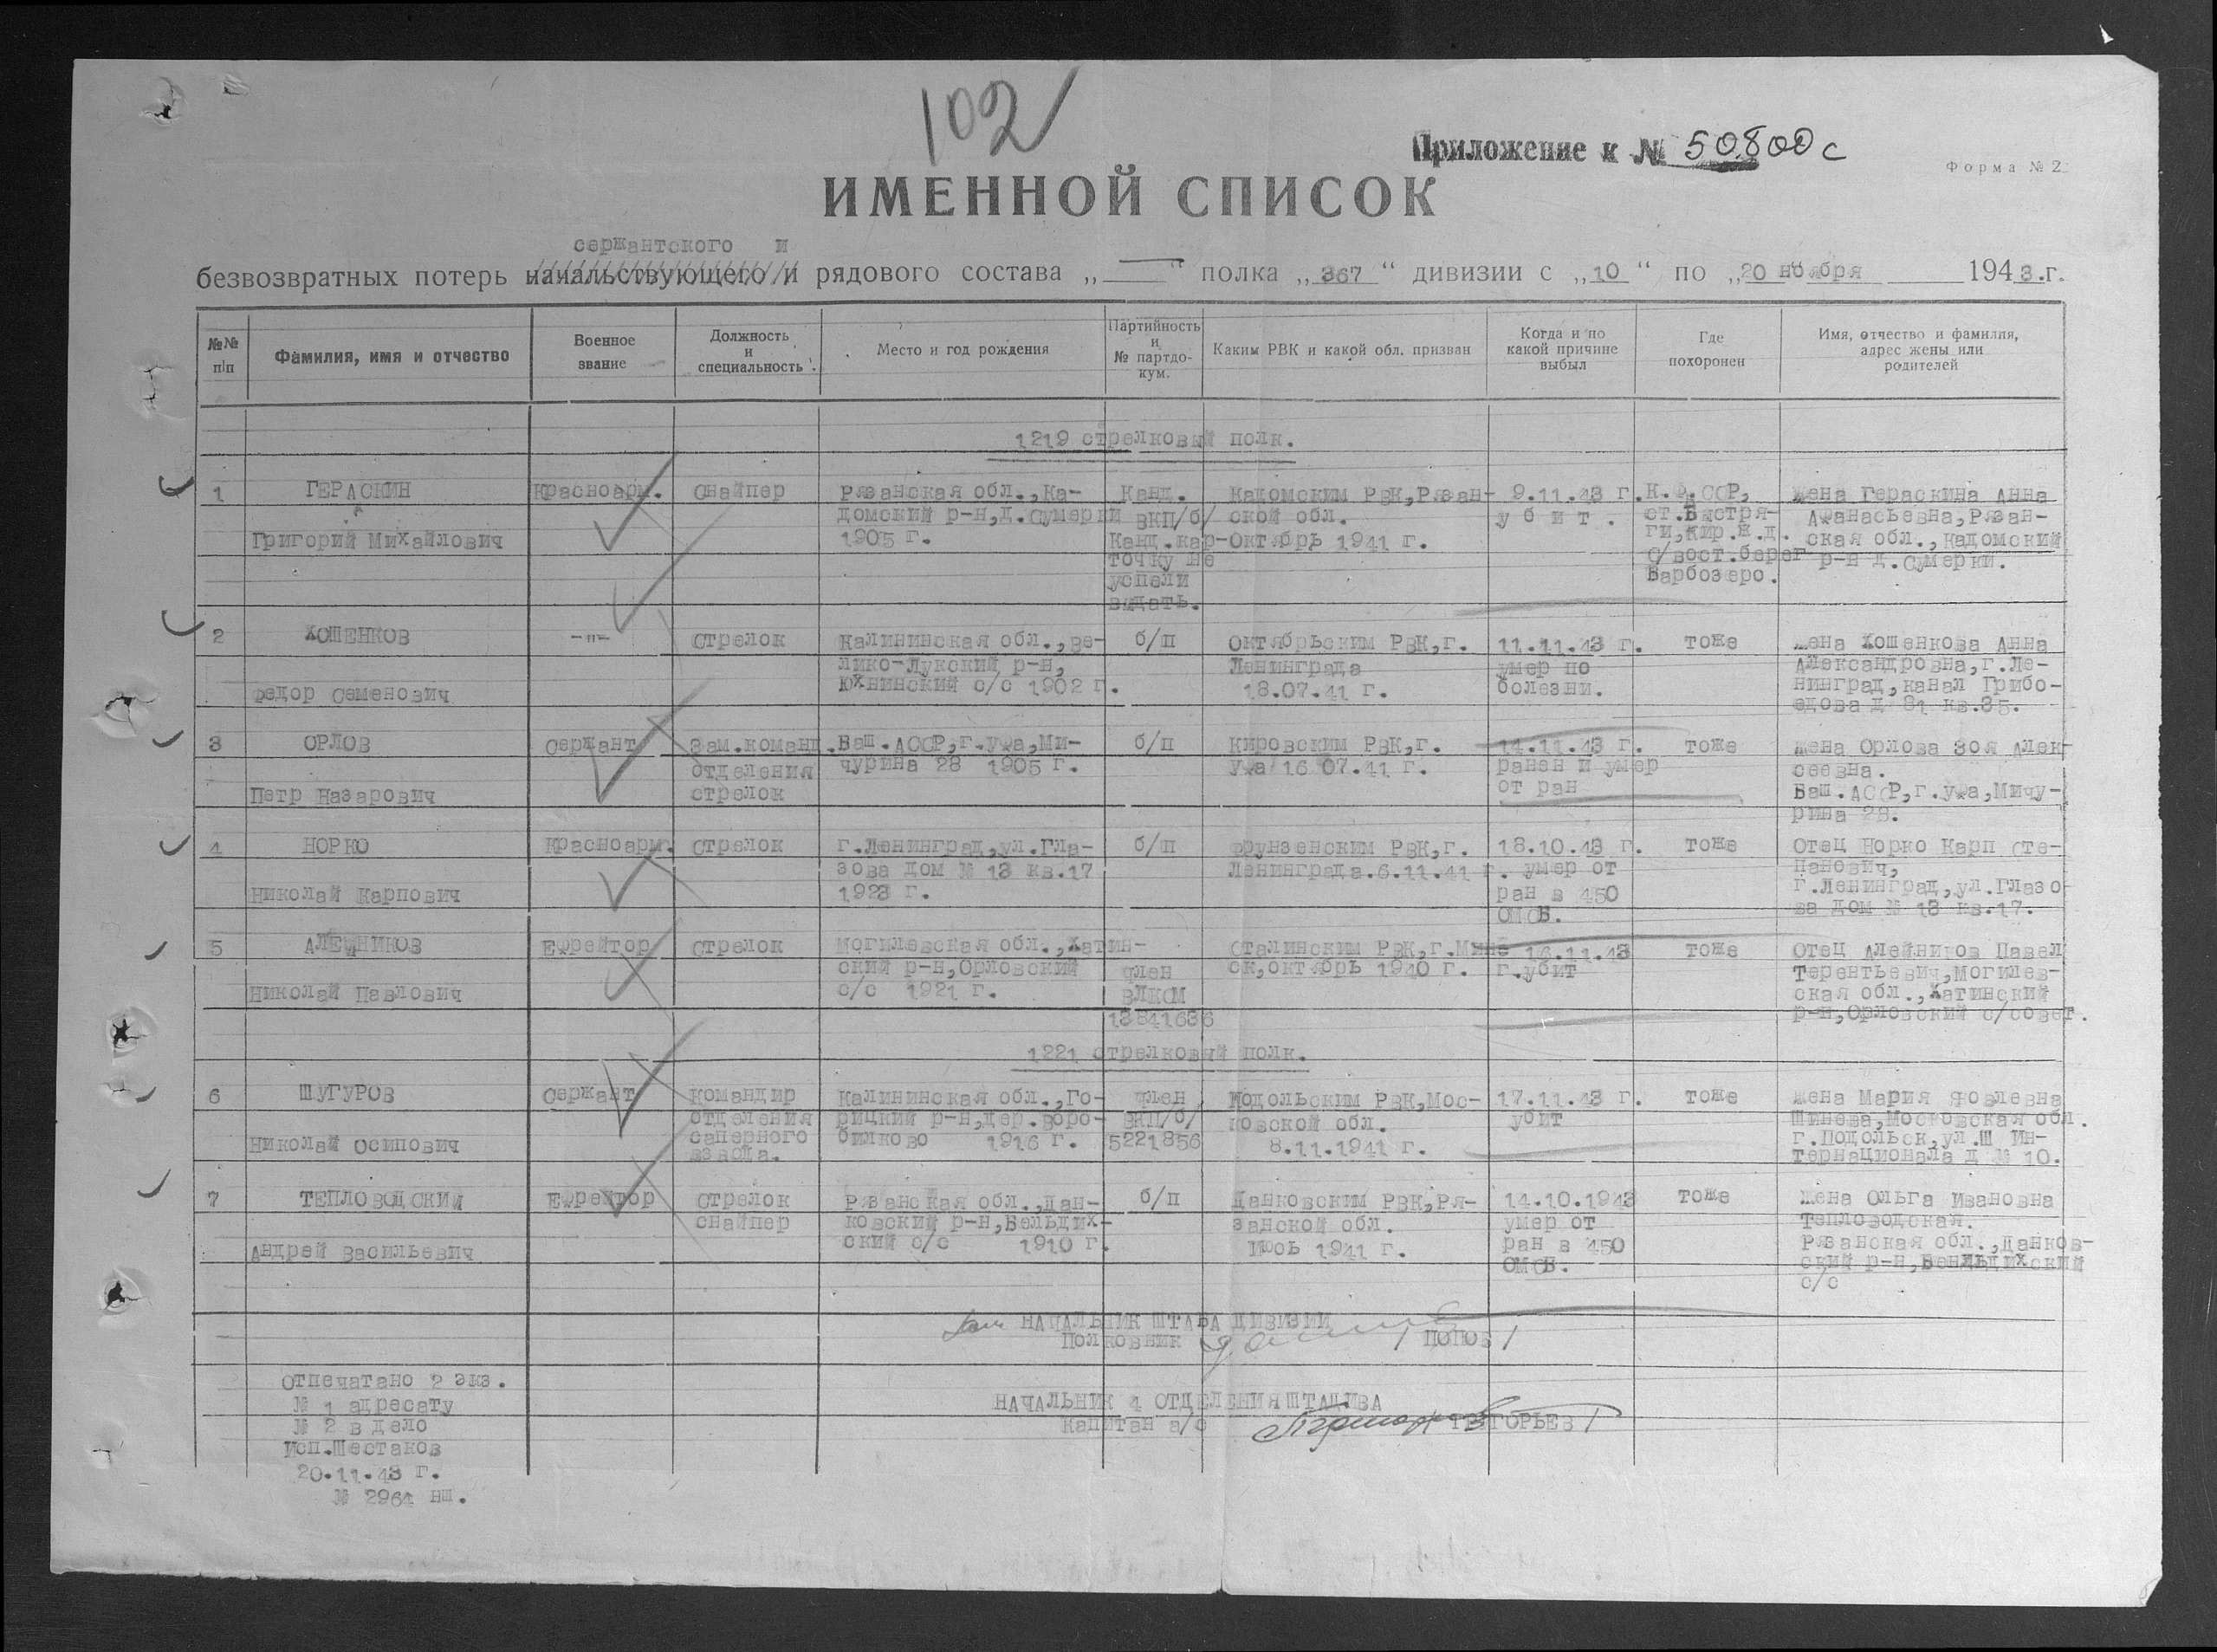 102
Приложение к № 50800с
Форма № 2
ИМЕННОЙ СПИСОК
сержантского и
безвозвратных потерь начальствующего и рядового состава „ — “ полка „ 367 “ дивизии с „ 10 “ по „ 20 ноября 1943.г.
№№ п/п
Фамилия, имя и отчество
Военное звание
Должность и специальность
Место и год рождения
Партийность и № партдо-кум.
Каким РВК и какой обл. призван
Когда и по какой причине выбыл
Где похоронен
Имя, отчество и фамилия, адрес жены или родителей
1219 стрелковый полк.
1 ГЕРАСКИН Красноарм. Снайпер Рязанская обл.,Ка- Канд. Кадомским РВК,Рязан- 9.11.43 г. К.Ф.ССР, Жена Гераскина Анна
домский р-н,д.Сумерки ВКП/б/ ской обл. убит. ст.Быстря- Афанасьевна,Рязан-
Григорий Михайлович 1905 г. Канд.кар- Октябрь 1941 г. ги,Кир.ж.д. ская обл.,Кадомский
точку не с/вост.берег р-н д.Сумерки.
успели Варбозеро.
выдать.
2 ХОШЕНКОВ -"- Стрелок Калининская обл.,Ве- б/п Октябрьским РВК,г. 11.11.43 г. тоже Жена Хошенкова Анна
лико-Лукский р-н, Ленинграда умер по Александровна,г.Ле-
Федор Семенович Юхнинский с/с 1902 г. 18.07.41 г. болезни. нинград,канал Грибо-
едова д 81 кв.35.
3 ОРЛОВ Сержант Зам.команд. Баш.АССР,г.Уфа,Ми- б/п Кировским РВК,г. 14.11.43 г. тоже Жена Орлова Зоя Алек-
отделения чурина 28 1905 г. Уфа 16 07.41 г. ранен и умер сеевна.
Петр Назарович стрелок от ран Баш.АССР,г.Уфа,Мичу-
рина 28.
4 НОРКО Красноарм. Стрелок г.Ленинград,ул.Гла- б/п Фрунзенским РВК,г. 18.10.43 г. тоже Отец Норко Карп Сте-
зова дом № 13 кв.17 Ленинграда.6.11.41 г. умер от панович,
Николай Карпович 1923 г. ран в 450 г.Ленинград,ул.Глазо-
ОМСБ. ва дом № 13 кв.17.
5 АЛЕЙНИКОВ Ефрейтор Стрелок Могилевская обл.,Хатин- Сталинским РВК,г.Минс 16.11.43 тоже Отец Алейников Павел
ский р-н,Орловский член ск,октябрь 1940 г. г.убит Терентьевич,Могилев-
Николай Павлович с/с 1921 г. ВЛКСМ ская обл.,Хатинский
13841636 р-н,Орловский с/совет.
1221 стрелковый полк.
6 ШУГУРОВ Сержант Командир Калининская обл.,Го- член Подольским РВК,Мос- 17.11.43 г. тоже Жена Мария Яковлевна
отделения рицкий р-н,дер.Воро- ВКП/б/ ковской обл. убит Шинева,Московская обл.
Николай Осипович саперного билково 1916 г. 5221856 8.11.1941 г. г.Подольск,ул.Ш Ин-
взвода. тернационала д № 10.
7 ТЕПЛОВОДСКИЙ Ефрейтор Стрелок Рязанская обл.,Дан- б/п Данковским РВК,Ря- 14.10.1943 тоже Жена Ольга Ивановна
снайпер ковский р-н,Бельдих- занской обл. умер от Тепловодская.
Андрей Васильевич ский с/с 1910 г. 1941 г. ран в 450 Рязанская обл.,Данков-
ОМСБ. ский р-н,
с/с
Зам НАЧАЛЬНИК ШТАБА ДИВИЗИИ
Полковник / ПОПОВ /
НАЧАЛЬНИК 4 ОТДЕЛЕНИЯ ШТАДИВА
Капитан а/с ГРИГОРЬЕВ /
Отпечатано 2 экз.
№ 1 адресату
№ 2 в дело
Исп.Шестаков
20.11.43 г.
№ 2964 нш.